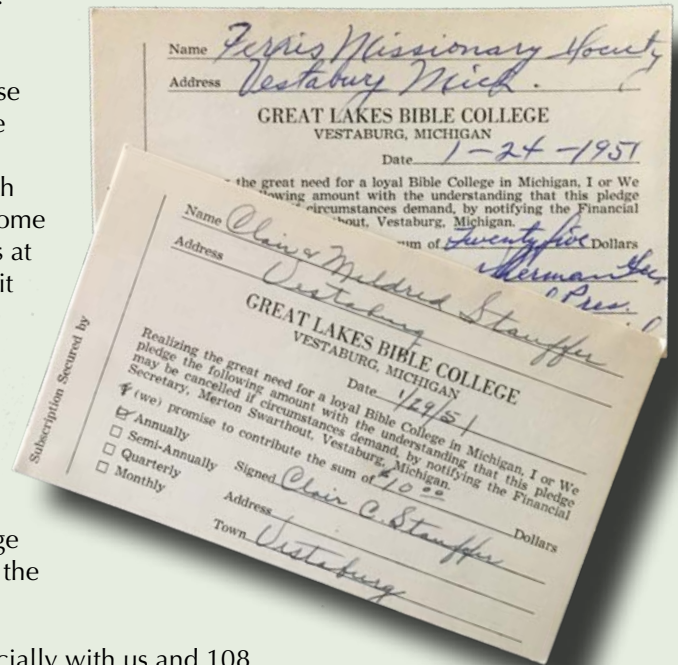 se
e
h
ome
s at
it
ge
the
cially with us and 108
Name Ferris Missionary Society
Address Vestaburg Mich.
GREAT LAKES BIBLE COLLEGE
VESTABURG, MICHIGAN
Date 1-24-1951
the great need for a loyal Bible College in Michigan, I or We
owing amount with the understanding that this pledge
circumstances demand, by notifying the Financial
hout, Vestaburg, Michigan.
um of Twenty five Dollars
Sherman
Pres.
Name Clair & Mildred Stauffer
Address Vestaburg
GREAT LAKES BIBLE COLLEGE
VESTABURG, MICHIGAN
Date 1/29/51
Realizing the great need for a loyal Bible College in Michigan, I or We
pledge the following amount with the understanding that this pledge
may be cancelled if circumstances demand, by notifying the Financial
Secretary, Merton Swarthout, Vestaburg, Michigan.
I (we) promise to contribute the sum of $10.00 Dollars
Annually
Semi-Annually
Quarterly
Monthly
Signed Clair C. Stauffer
Address
Town Vestaburg
Subscription Secured by